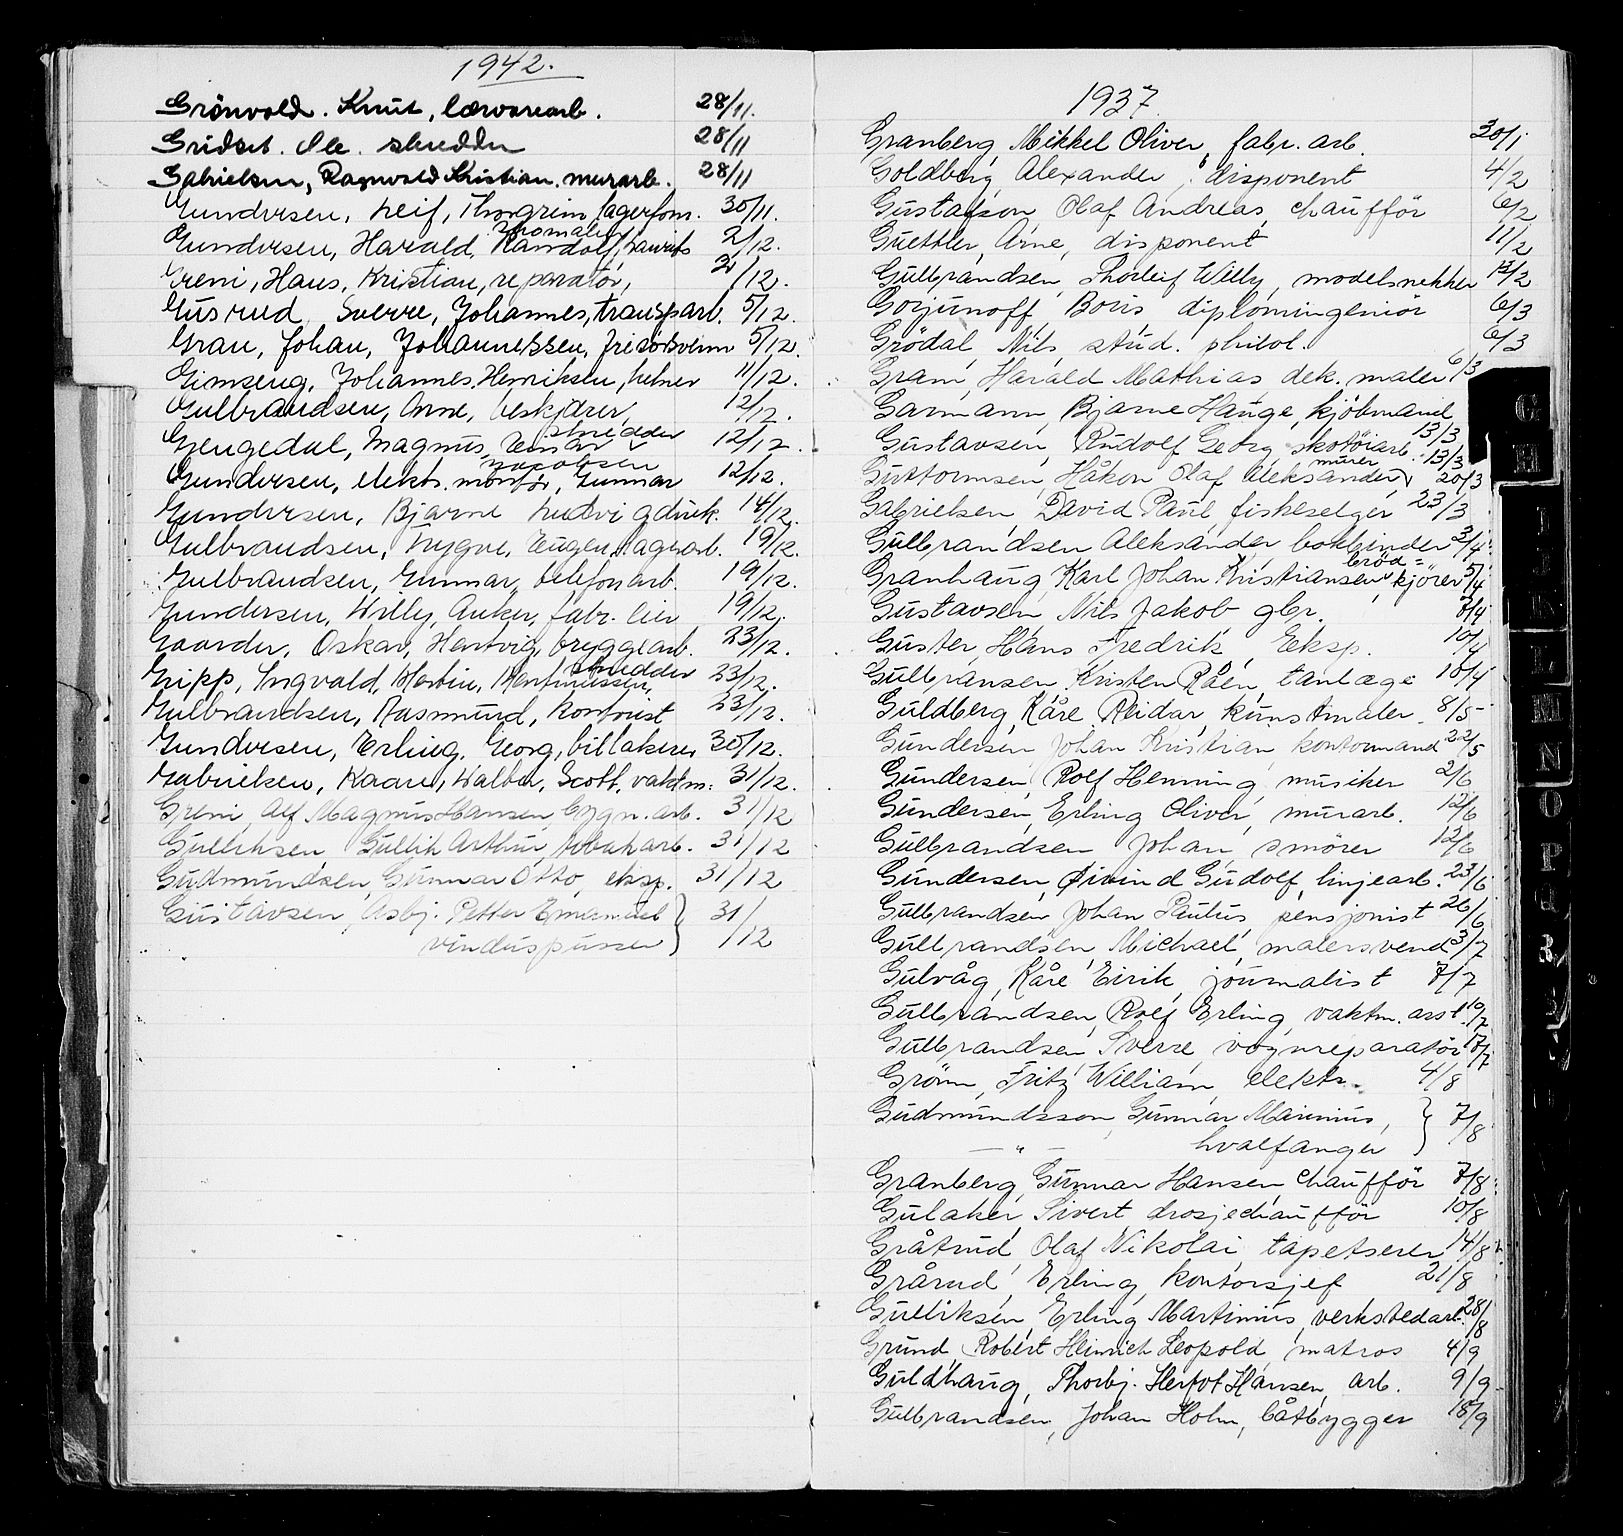 1942.
Grönvold. Knut, lærvarearb. 28/11.
Gridset. Ole. skredder 28/11
Gabrielsen, Ragnvald Kristian. murarb. 28/11
Gundersen, Leif, Thorgrim, lagerform. 30/11.
Gundersen, Harald, Randolf, 2/12.
Greni, Hans, Kristian, reparatør, 2/12.
Gusrud, Sverre, Johannes, transp.arb. 5/12.
Grau, Johan, Johannessen, frisörsvenn 5/12.
Gimseng, Johannes, Henriksen, kelner 11/12.
Gulbrandsen, Arne, beskjærer, 12/12.
skredder
Gjengedal, Magnus, Einar 12/12.
Jacobsen
Gundersen, elektr. montør, Gunnar 12/12.
Gundersen, Bjarne Ludvig 14/12.
Gulbrandsen, Trygve, Eugen, lagerarb. 19/12.
Gulbrandsen, Gunnar, telefonarb. 19/12.
Gundersen, Willy, Anker, fabr. eier 19/12.
Gaarder, Oskar, Hentvig, bryggearb. 23/12.
skredder
Gripp, Ingvald, Martin, Martinussen, 23/12.
Gulbrandsen, Aasmund, kontorist 23/12.
Gundersen, Erling, Georg, billakerer 30/12.
Gabrielsen, Kaare, Walter, Scott, vaktm. 31/12.
Greni, Alf Magnus Hansen, bygn. arb. 31/12
Gulliksen, Gullik Arthur, tobakarb. 31/12
Gudmundsen, Gunnar Otto, eksp. 31/12
Gustavsen, Asbj. Petter Emanuel } 31/
vinduspusser } /12
1937.
Granberg, Mikkel Oliver, fabr. arb. 30/1
Goldberg, Alexander, disponent 4/2
Gustafson, Olaf Andreas, chaufför 6/2
Guettler, Arne, disponent 11/2
Gulbrandsen, Thorleif Willy, modelsnekker 13/2
Gorjunoff, Boris diplomingeniör 6/3
Grödal, Nils, stud. philol. 6/3
Gram, Harald Mathias dek. maler 6/3
Garmann, Bjarne Hauge, kjöbmand 13/3
Gustavsen, Rudolf Georg, skotöiarb. 13/3
murer
Guttormsen, Håkon Olaf Aleksander, 20/3
Gabrielsen, David Paul fiskeselger 23/3
Gulbrandsen Aleksander bokbinder 3/4
bröd=
Granhaug, Karl Johan Kristiansen, kjörer 5/4
Gustavsen, Nils Jakob gbr. 7/4
Guster, Hans Fredrik, Eksp. 10/4
Gulbransen, Kristen Råen, tanlæge 10/4
Guldberg, Kåre Reidar, kunstmaler. 8/5
Gundersen, Johan Kristian kontormand 22/5
Gundersen, Rolf Henning, musiker 2/6
Gundersen, Erling Oliver, murarb. 12/6
Gulbrandsen Johan smörer 12/6
Gundersen, Øivind Gudolf, linjearb. 23/6
Gulbrandsen, Johan Paulus, pensjonist 26/6
Gulbrandsen, Michael, malersvend 3/7
Gulvåg, Kåre Eirik, journalist 7/7
Gulbrandsen, Rolf Erling, vaktm. asst. 10/7
Gulbrandsen, Sverre vognreparatör 17/7
Grönn, Fritz William, elektr. 4/8
Gudmundsson, Gunnar Marinius, } 7/8
— " — hvalfanger
Granberg, Gunnar Hansen, chaufför 7/8
Gulaker, Sivert drosjechaufför 10/8
Gråtrud, Olaf Nikolai, tapetserer 14/8
Grårud, Erling, kontorsjef 21/8
Gulliksen, Erling Martinius, verkstedarb. 28/8
Grund, Robert Heinrich Leopold, matros 4/9
Guldhaug, Thorbj. Herlof Hansen, arb. 9/9
Gulbrandsen, Johan Holm, båtbygger 18/9
G
H
I
J
K
L
M
N
O
P